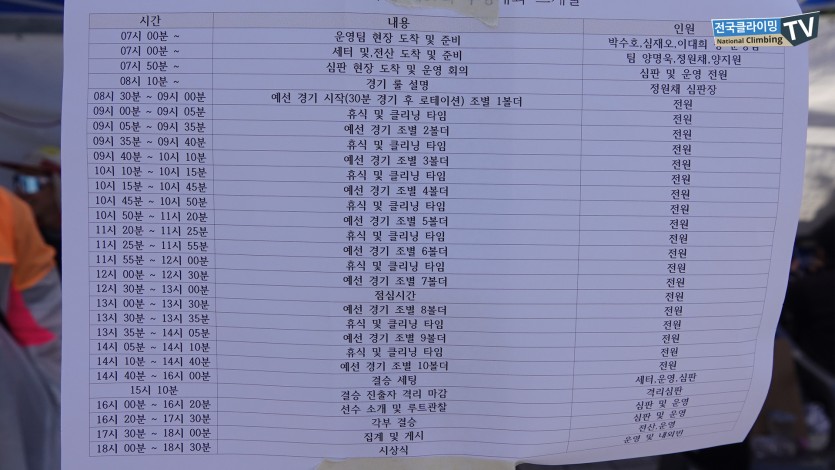 전국클라이밍 TV
National Climbing
시간 내용 인원
07시 00분 ~ 운영팀 현장 도착 및 준비 박수호,심재오,이대희
07시 00분 ~ 세터 및,전산 도착 및 준비 팀 양명욱,정원채,양지원
07시 50분 ~ 심판 현장 도착 및 운영 회의 심판 및 운영 전원
08시 10분 ~ 경기 룰 설명 정원채 심판장
08시 30분 ~ 09시 00분 예선 경기 시작(30분 경기 후 로테이션) 조별 1볼더 전원
09시 00분 ~ 09시 05분 휴식 및 클리닝 타임 전원
09시 05분 ~ 09시 35분 예선 경기 조별 2볼더 전원
09시 35분 ~ 09시 40분 휴식 및 클리닝 타임 전원
09시 40분 ~ 10시 10분 예선 경기 조별 3볼더 전원
10시 10분 ~ 10시 15분 휴식 및 클리닝 타임 전원
10시 15분 ~ 10시 45분 예선 경기 조별 4볼더 전원
10시 45분 ~ 10시 50분 휴식 및 클리닝 타임 전원
10시 50분 ~ 11시 20분 예선 경기 조별 5볼더 전원
11시 20분 ~ 11시 25분 휴식 및 클리닝 타임 전원
11시 25분 ~ 11시 55분 예선 경기 조별 6볼더 전원
11시 55분 ~ 12시 00분 휴식 및 클리닝 타임 전원
12시 00분 ~ 12시 30분 예선 경기 조별 7볼더 전원
12시 30분 ~ 13시 00분 점심시간 전원
13시 00분 ~ 13시 30분 예선 경기 조별 8볼더 전원
13시 30분 ~ 13시 35분 휴식 및 클리닝 타임 전원
13시 35분 ~ 14시 05분 예선 경기 조별 9볼더 전원
14시 05분 ~ 14시 10분 휴식 및 클리닝 타임 전원
14시 10분 ~ 14시 40분 예선 경기 조별 10볼더 전원
14시 40분 ~ 16시 00분 결승 세팅 세터,운영,심판
15시 10분 결승 진출자 격리 마감 격리심판
16시 00분 ~ 16시 20분 선수 소개 및 루트관찰 심판 및 운영
16시 20분 ~ 17시 30분 각부 결승 심판 및 운영
17시 30분 ~ 18시 00분 집계 및 게시 전산,운영
18시 00분 ~ 18시 30분 시상식 운영 및 내외빈